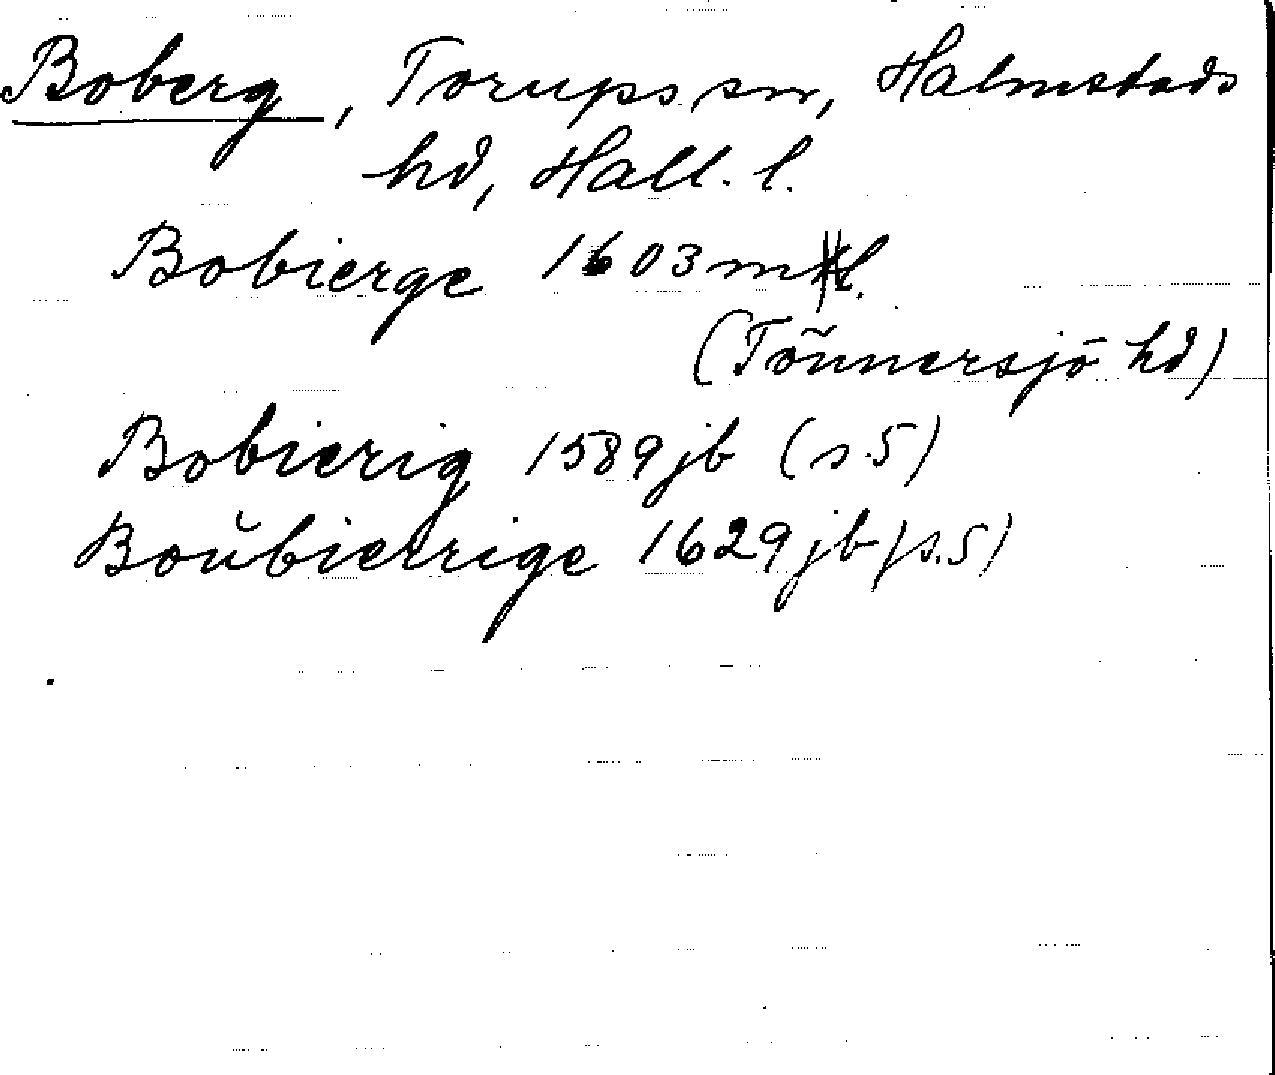 Boberg, Torups sn, Halmstads
hd, Hall. l.
Bobierge 1603 ml.
(Tönnersjö hd)
Bobierig 1589 jb (s. 5)
Boŭbierrige 1629 jb (s. 5)